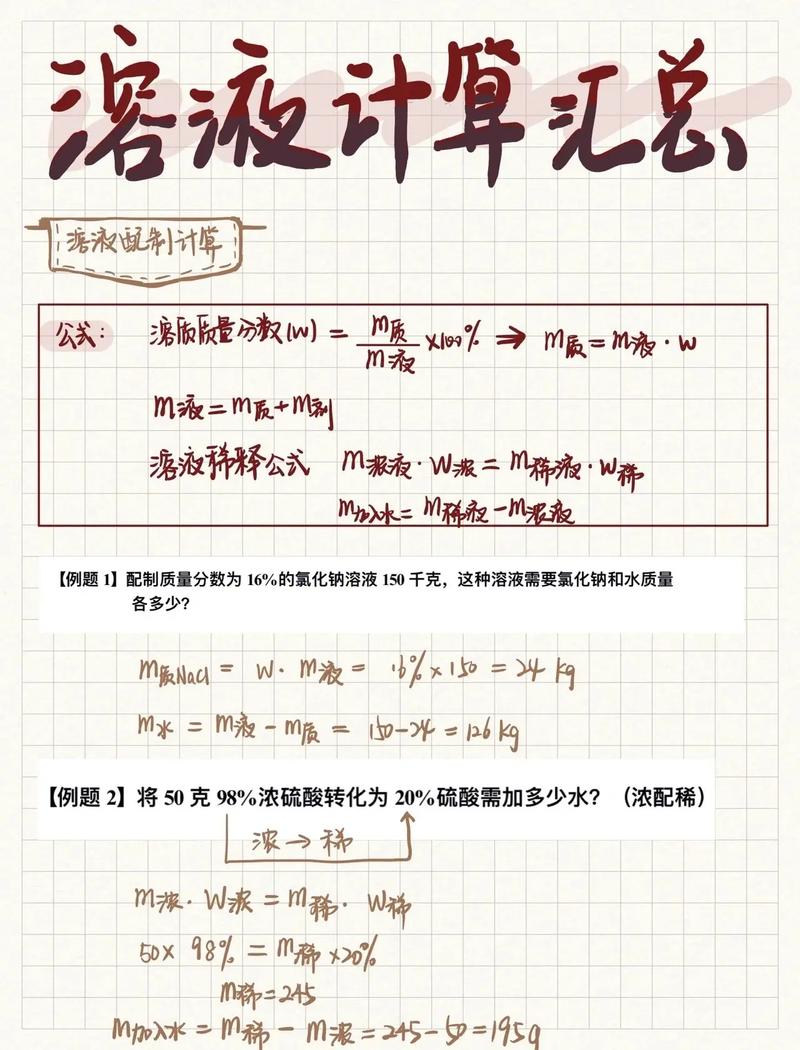 溶液计算汇总
溶液配制计算
公式: 溶质质量分数(w) = m质/m液 ×100% ⇒ m质 = m液 · w
m液 = m质 + m剂
溶液稀释公式 m浓液 · w浓 = m稀液 · w稀
m加入水 = m稀液 - m浓液
【例题 1】配制质量分数为 16%的氯化钠溶液 150 千克，这种溶液需要氯化钠和水质量
各多少？
m质NaCl = w · m液 = 16% × 150 = 24 kg
m水 = m液 - m质 = 150-24 = 126 kg
【例题 2】将 50 克 98%浓硫酸转化为 20%硫酸需加多少水？（浓配稀）
浓 → 稀
m浓 · w浓 = m稀 · w稀
50× 98% = m稀 ×20%
m稀 = 245
m加入水 = m稀 - m浓 = 245-50 = 195g